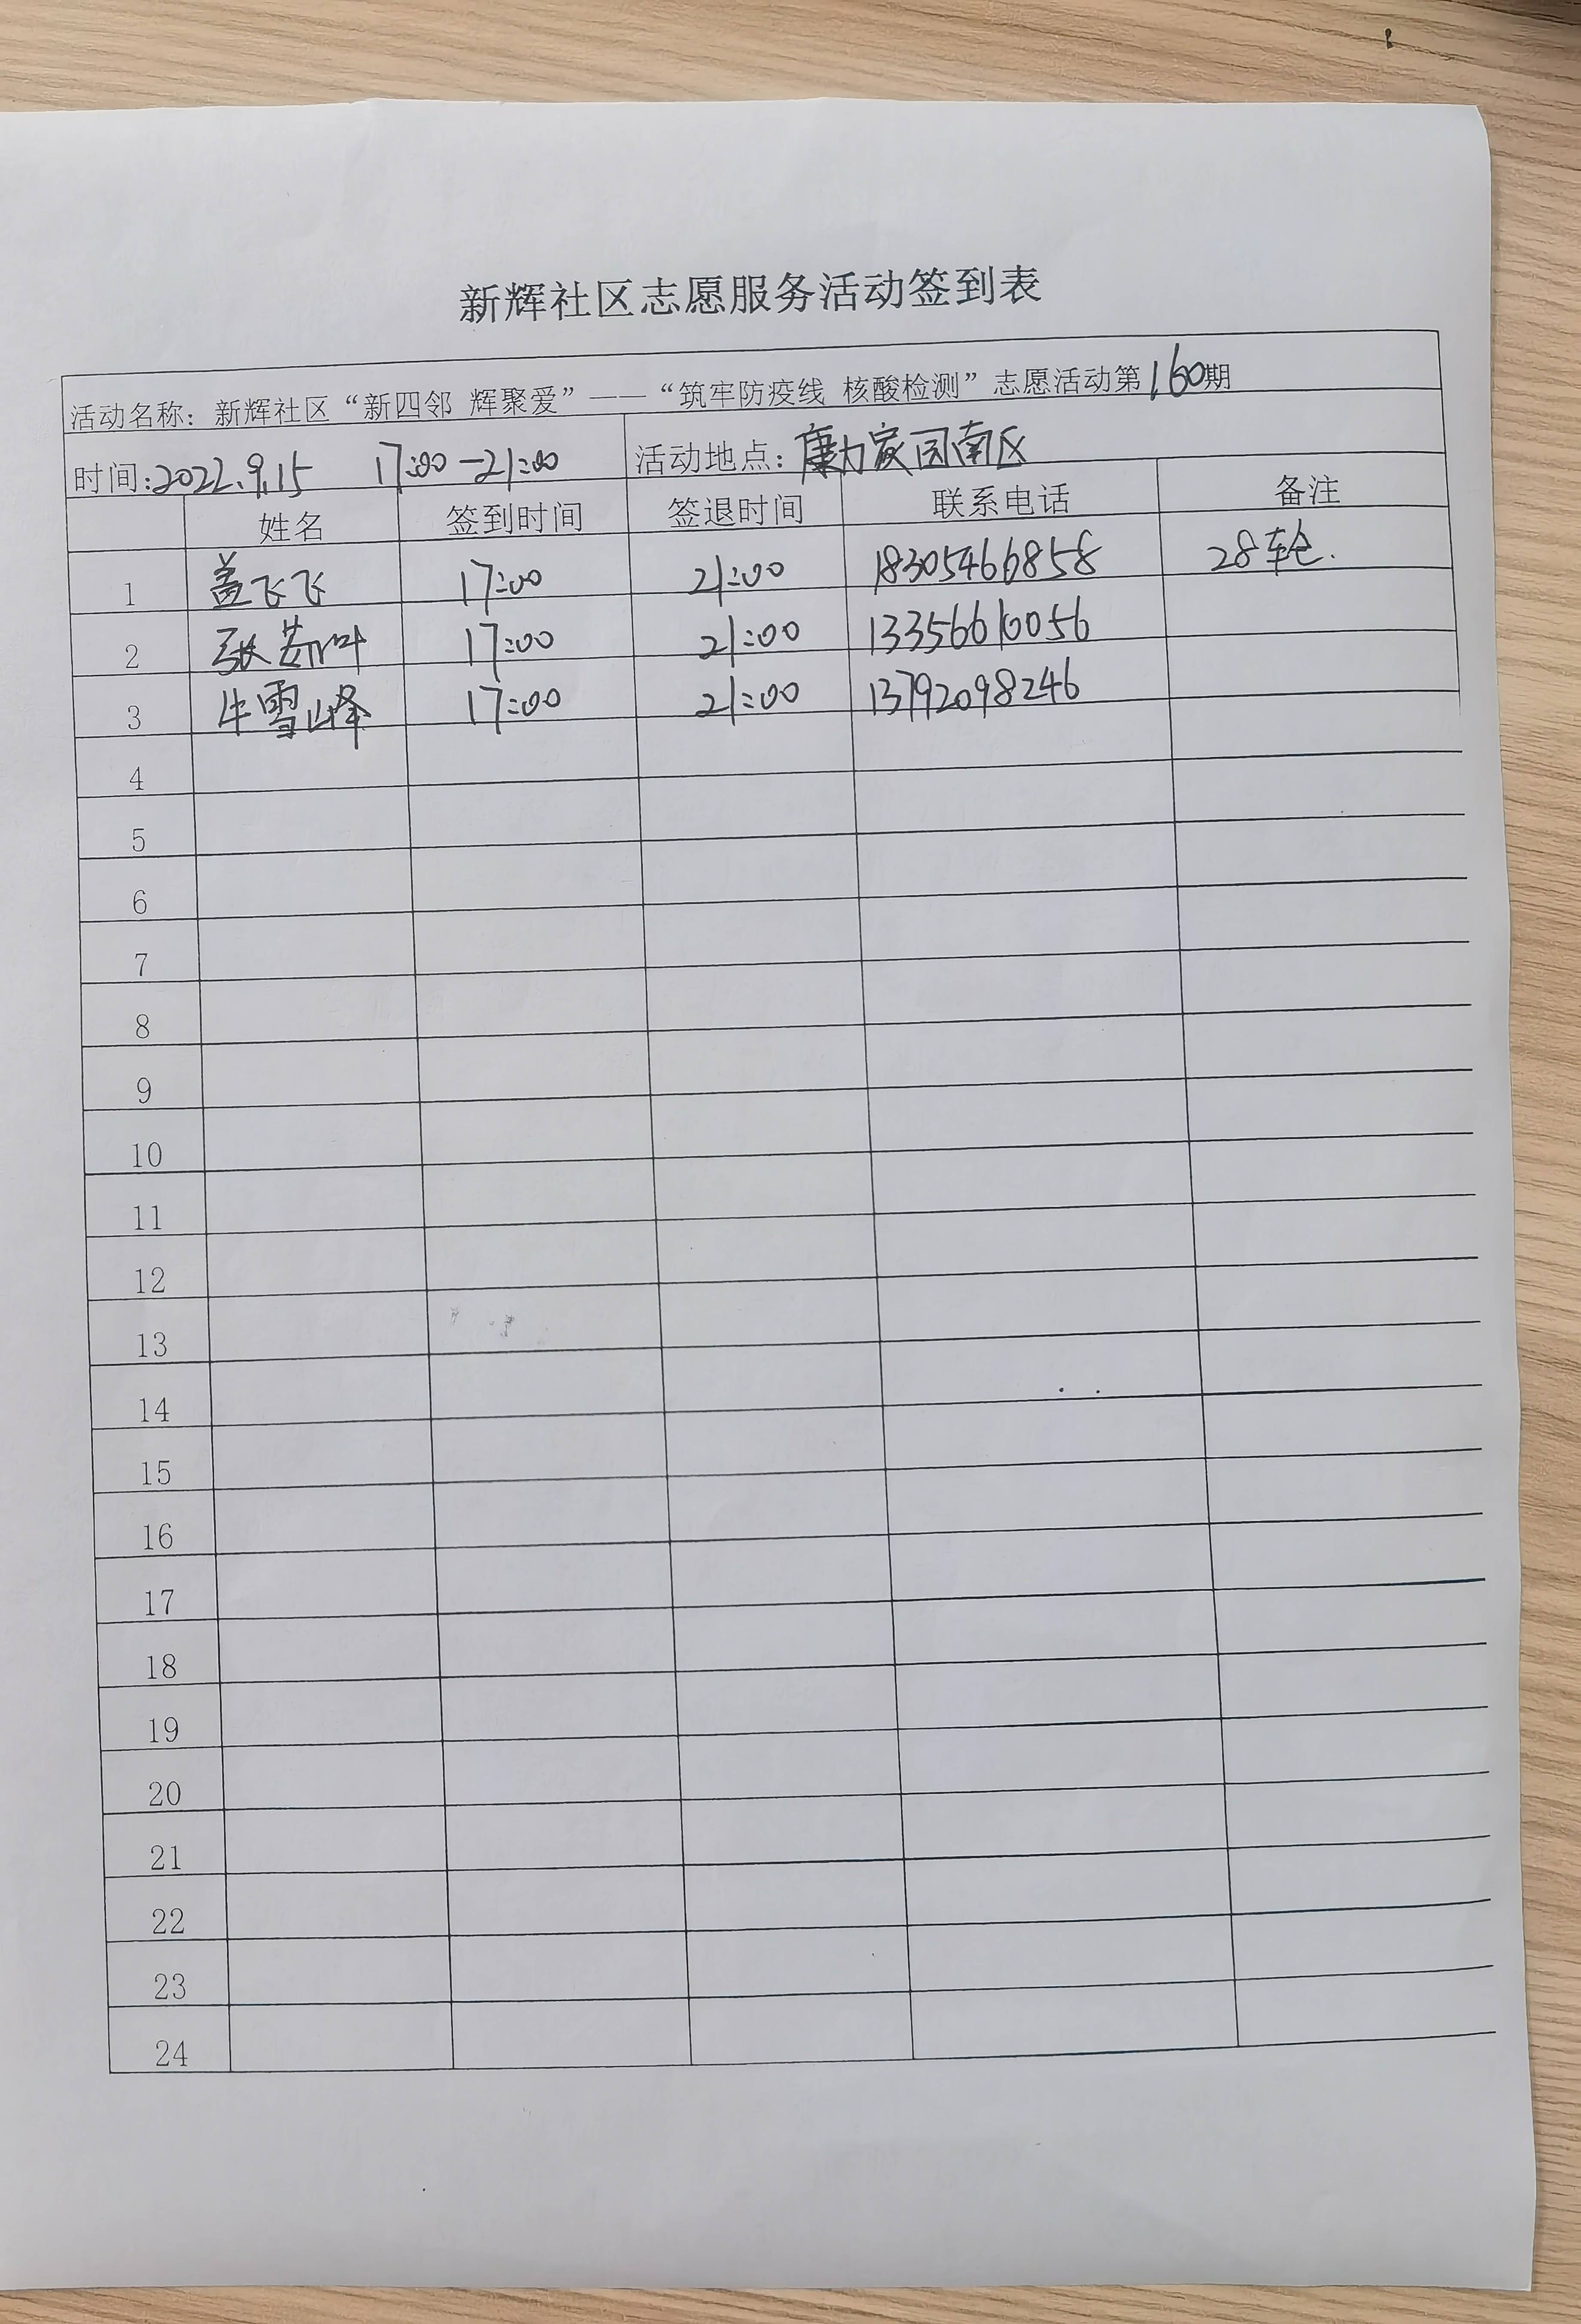 新辉社区志愿服务活动签到表
活动名称：新辉社区“新四邻 辉聚爱”——“筑牢防疫线 核酸检测”志愿活动第160期
时间:2022.9.15 17:00-21:00 活动地点：康力家园南区
姓名 签到时间 签退时间 联系电话 备注
1 盖飞飞 17:00 21:00 18305466858 28轮.
2 张 叶 17:00 21:00 13356610056
3 牛雪峰 17:00 21:00 13792098246
4
5
6
7
8
9
10
11
12
13
14
15
16
17
18
19
20
21
22
23
24